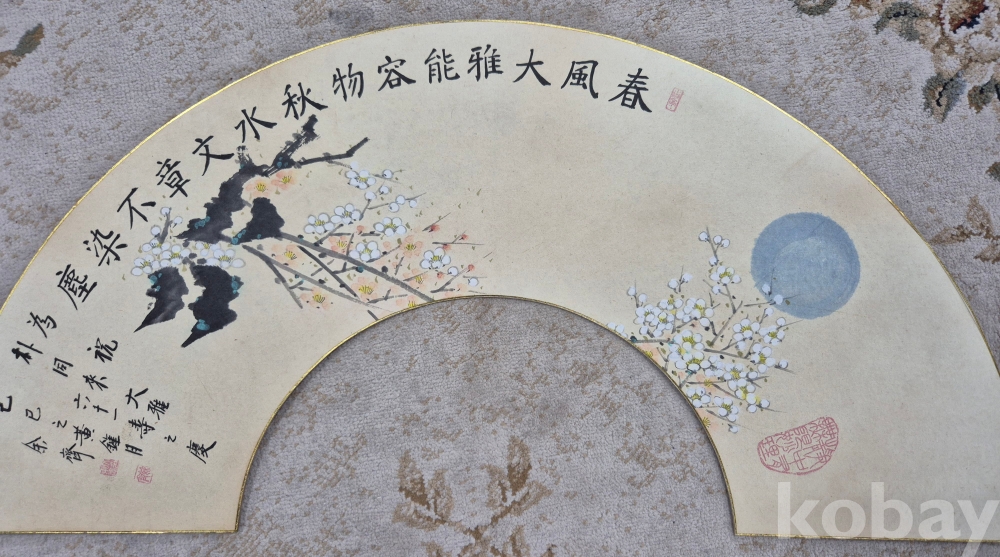 春風大雅能容物秋水文章不染塵
為祝
朴同來大雅
六十一壽之慶
己巳之黃鐘月
余齊
kobay